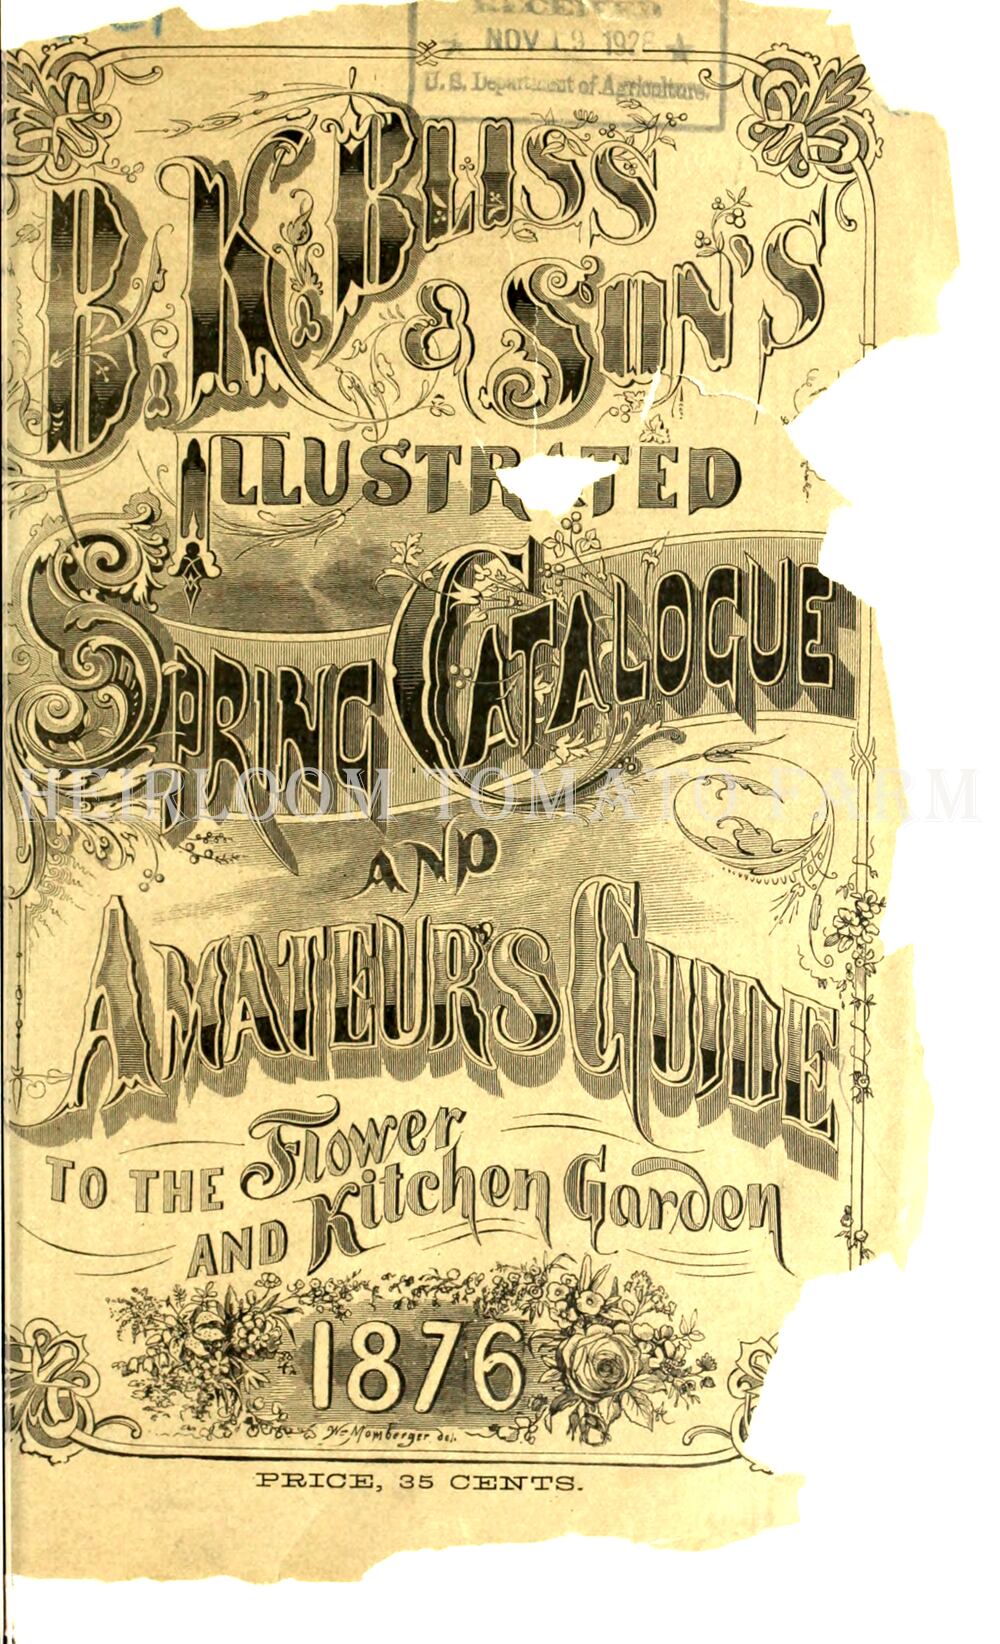 RECEIVED
★ NOV 19 192 ★
U. S. Department of Agriculture.
B. K. BLISS
& SON'S
ILLUSTRATED
SPRING CATALOGUE
HEIRLOOM TOMATO FARM
AND
AMATEUR'S GUIDE
TO THE Flower
AND Kitchen Garden
1876
Wm Momberger del.
PRICE, 35 CENTS.